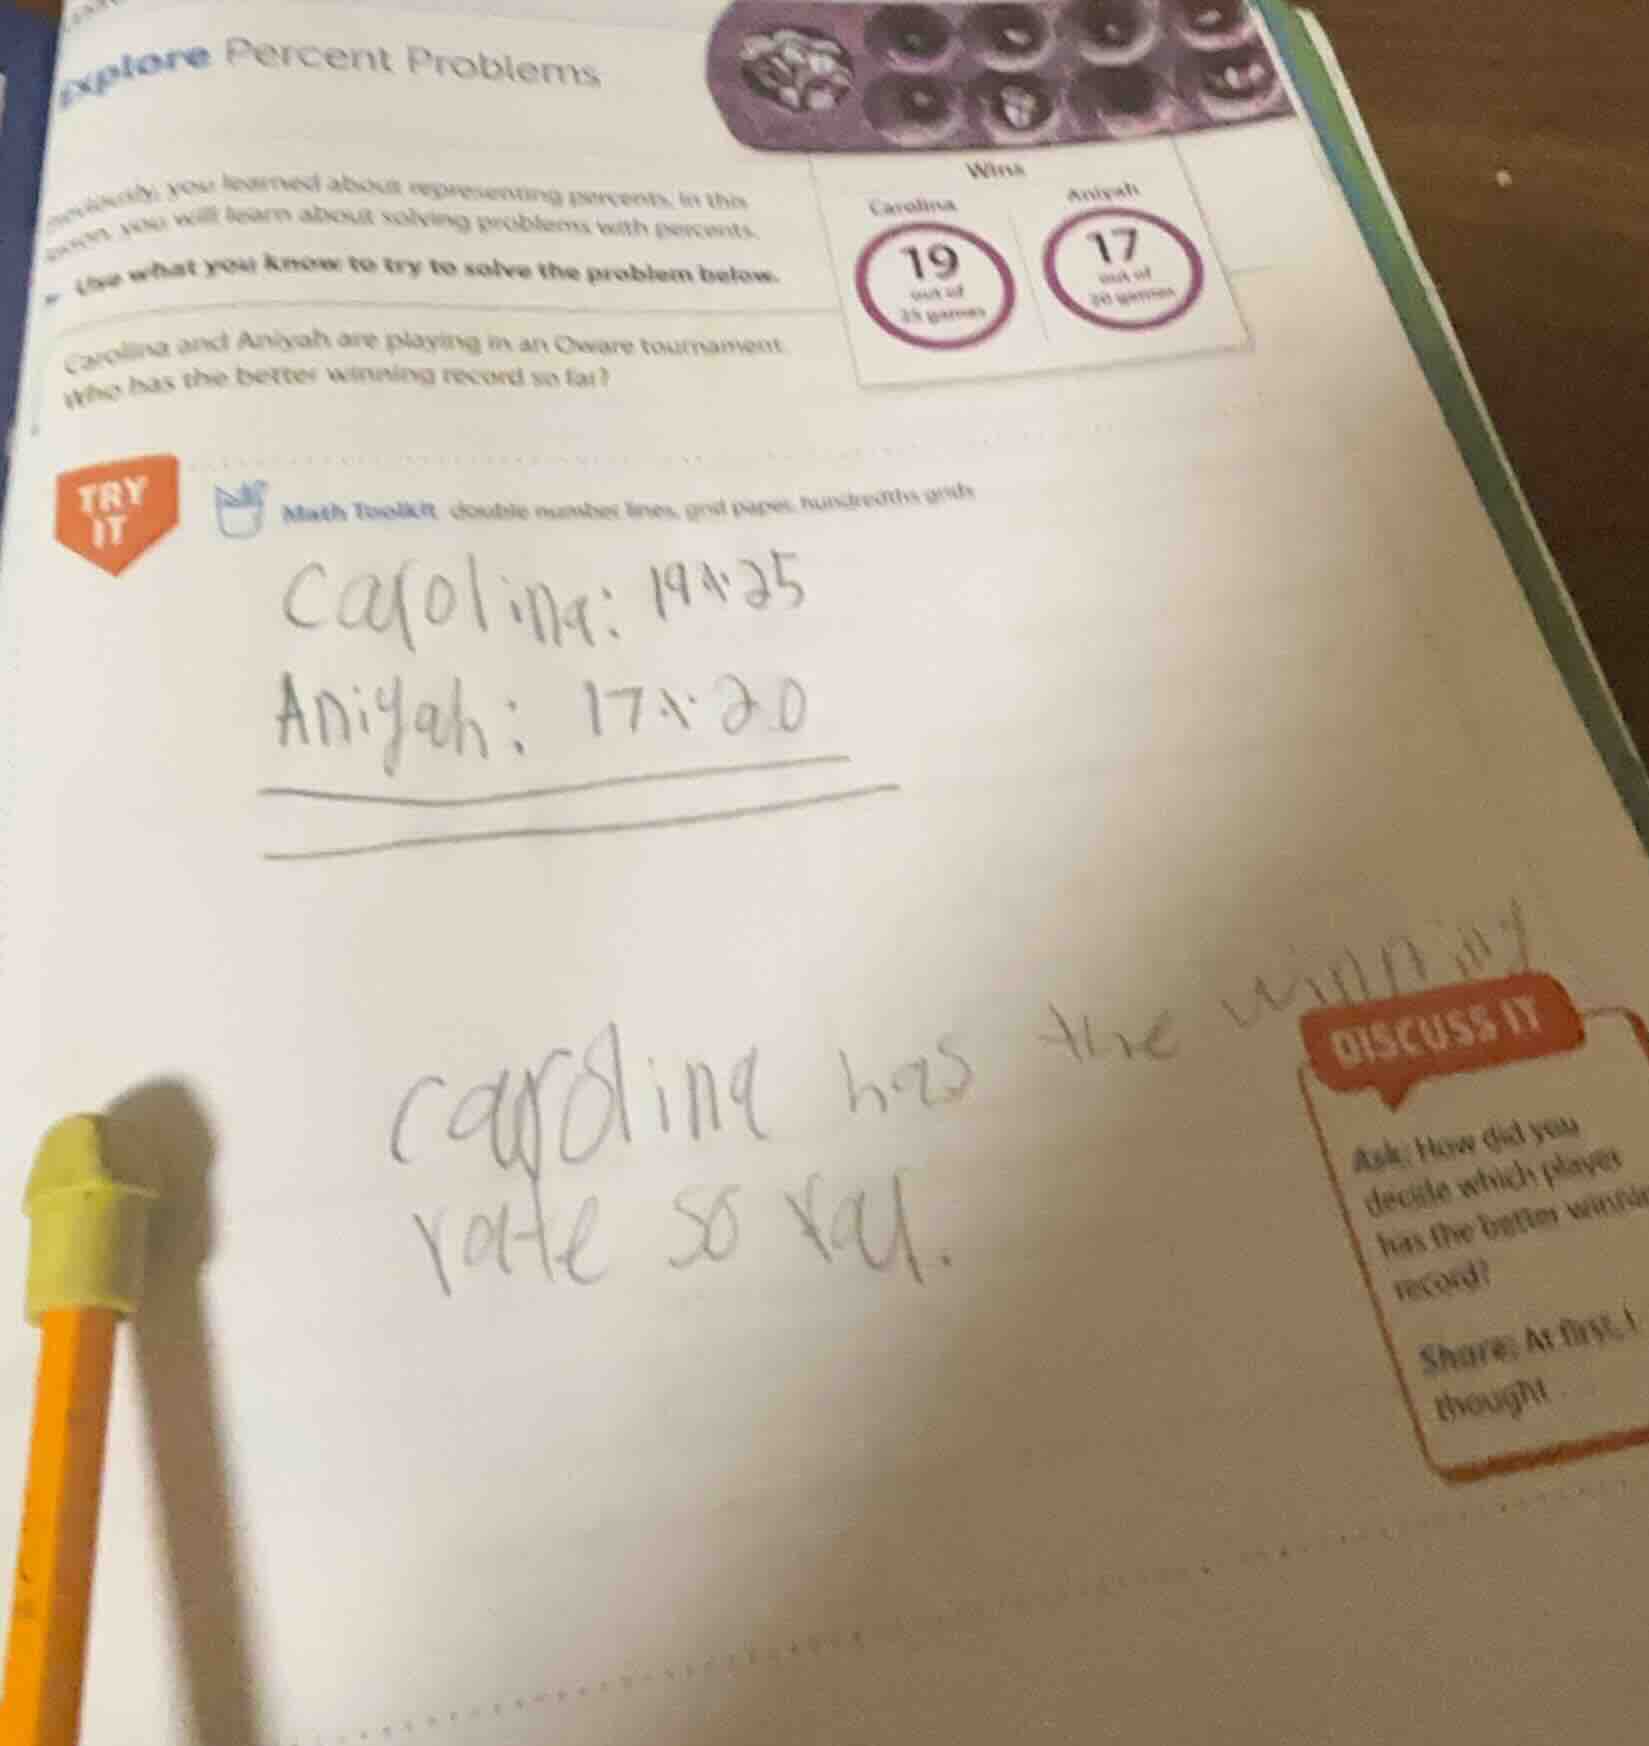 Explore Percent Problems
Previously, you learned about representing percents. In this
lesson, you will learn about solving problems with percents.
Use what you know to try to solve the problem below.
Wins
Carolina
19
out of
25 games
Aniyah
17
out of
20 games
Carolina and Aniyah are playing in an Oware tournament.
Who has the better winning record so far?
TRY
IT
Math Toolkit double number lines, grid paper, hundredths grids
Carolina: 19 25
Aniyah: 17 20
carolina has the winning
rate so far.
DISCUSS IT
Ask: How did you
decide which player
has the better winning
record?
Share: At first, I
thought . . .